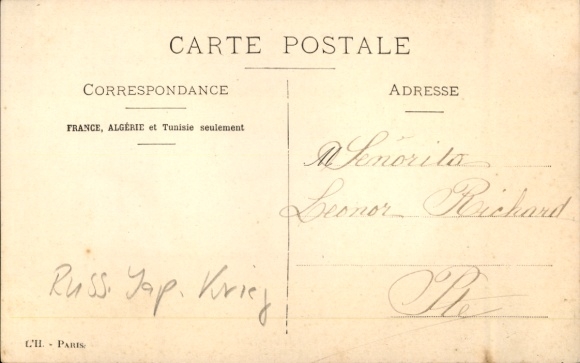 CARTE POSTALE
CORRESPONDANCE
FRANCE, ALGÉRIE et Tunisie seulement
ADRESSE
Señorita
Leonor Richard
Pte
Russ. Jap. Krieg
L'H. - PARIS.